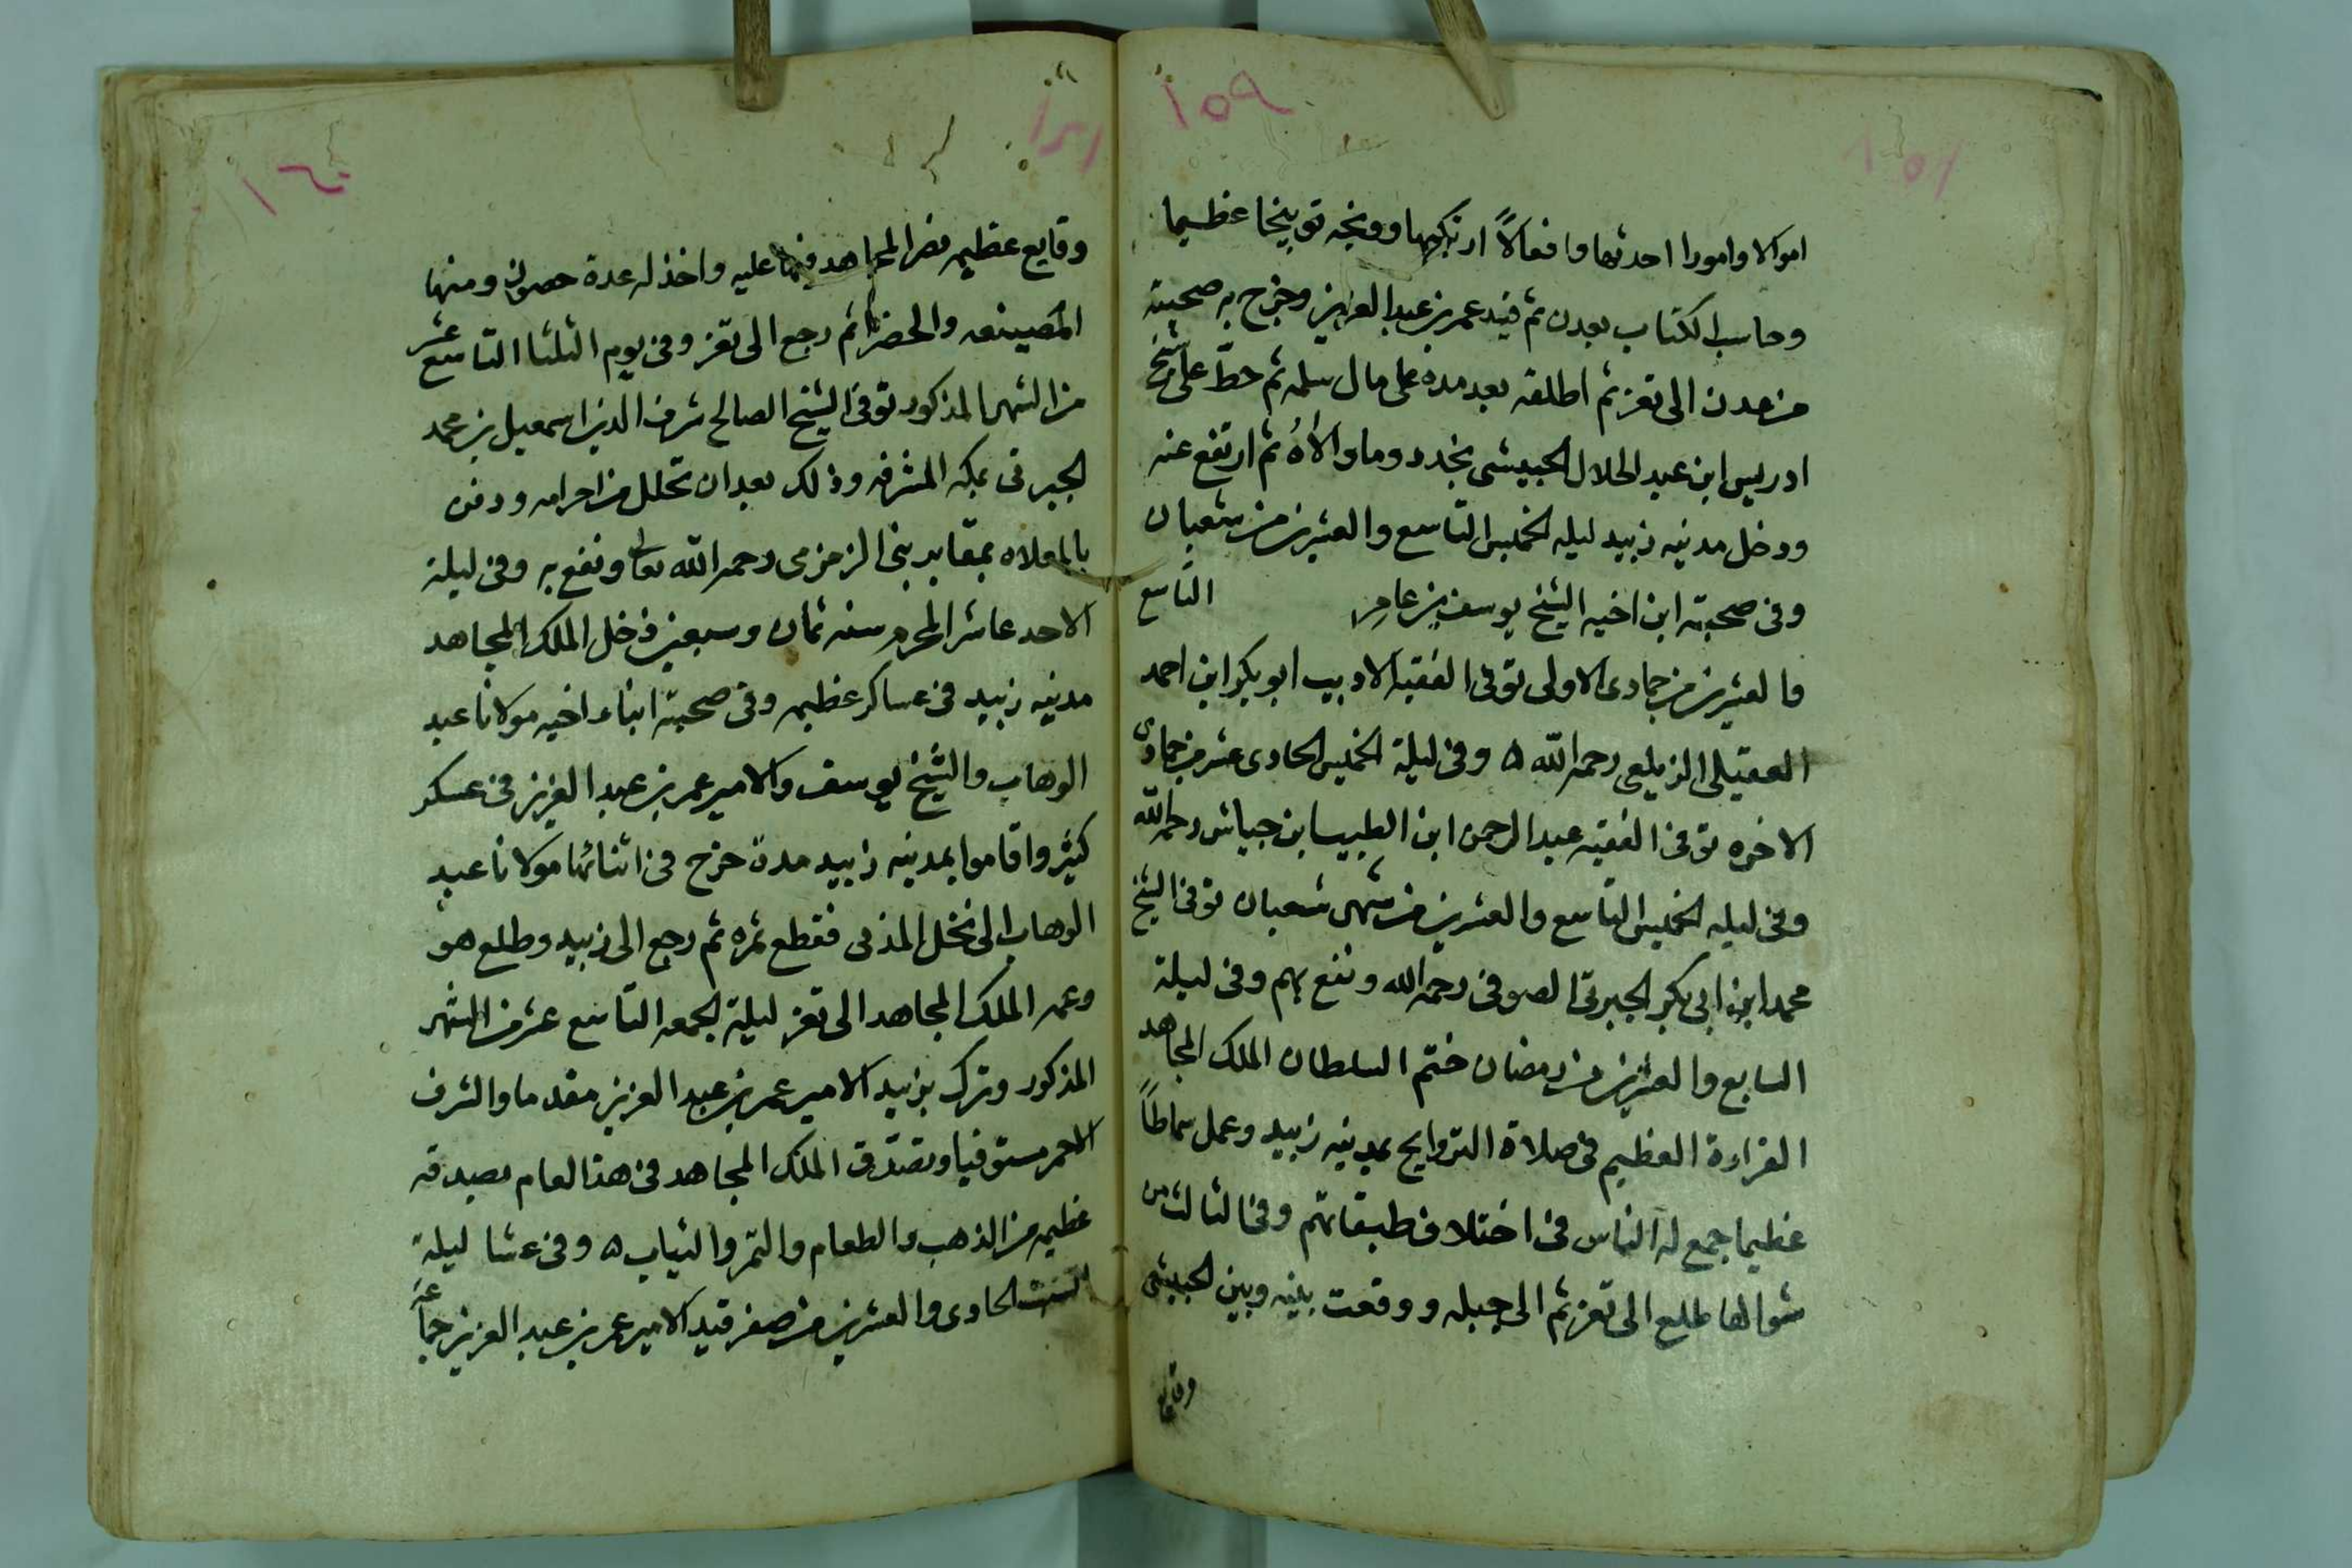 ١٥٩
اموالا وامورا احدثها وافعالاً ارتكبها ووبخه توبيخا عظيما
وحاسب الكتاب بعدن ثم قيد عمر بن عبد العزيز وخرج به صحبته
من عدن الى تعز ثم اطلقه بعد مده على مال سلمه ثم حطّ على شيخ
ادريس ابن عبد الجلال الحبيشي بخدد وما والاهُ ثم ارتفع عنه
ودخل مدينه زبيد ليله الخميس التاسع والعشرين من شعبان
وفي صحبته ابن اخيه الشيخ يوسف بن عامر التاسع
والعشرين من جمادى الاولى توفى الفقيه الاديب ابو بكر ابن احمد
العقيلي الزيلعي رحمه الله ٥ وفي ليلة الخميس الحادى عشر من جمادى
الاخره توفى الفقيه عبد الرحمن ابن الطيب ابن جياش رحمه الله
وفي ليله الخميس التاسع والعشرين من شهر شعبان توفى الشيخ
محمد ابن ابى بكر الجبرتى الصوفى رحمه الله ونفع بهم وفي ليلة
السابع والعشرين من رمضان ختم السلطان الملك المجاهد
القراءة العظيم في صلاة التراويح بمدينه زبيد وعمل سماطاً
عظيما جمع له الناس في اختلاف طبقاتهم وفي الثالث من
شوالها طلع الى تعز ثم الى جبله ووقعت بينه وبين الحبيشي
وقايع
١٦٠
وقايع عظيمه نصر المجاهد فيها عليه واخذ له عدة حصون ومنها
المصينعه والخضرا ثم رجع الى تعز وفي يوم الثلثا التاسع عشر
من الشهر المذكور توفى الشيخ الصالح شرف الدين اسمعيل بن محمد
الجبرتى بمكه المشرفه وذلك بعد ان تحلل من احرامه ودفن
بالمعلاه بمقابر بنى الزمزمى رحمه الله تعالى ونفع به وفي ليلة
الاحد عاشر المحرم سنه ثمان وسبعين دخل الملك المجاهد
مدينه زبيد في عساكر عظيمه وفي صحبته ابناء اخيه مولانا عبد
الوهاب والشيخ يوسف والامير عمر بن عبد العزيز في عسكر
كثير واقاموا بمدينه زبيد مدة خرج في اثنائها مولانا عبد
الوهاب الى نخل المدنى فقطع ثمره ثم رجع الى زبيد وطلع هو
وعمه الملك المجاهد الى تعز ليلة الجمعه التاسع عشر من الشهر
المذكور وترك بزبيد الامير عمر بن عبد العزيز مقدما والشرف
الاحمر مستوفيا وتصدّق الملك المجاهد في هذا العام بصدقه
عظيمه من الذهب والطعام والتمر والثياب ٥ وفي عشا ليلة
السبت الحادى والعشرين من صفر قيد الامير عمر بن عبد العزيز جماعه